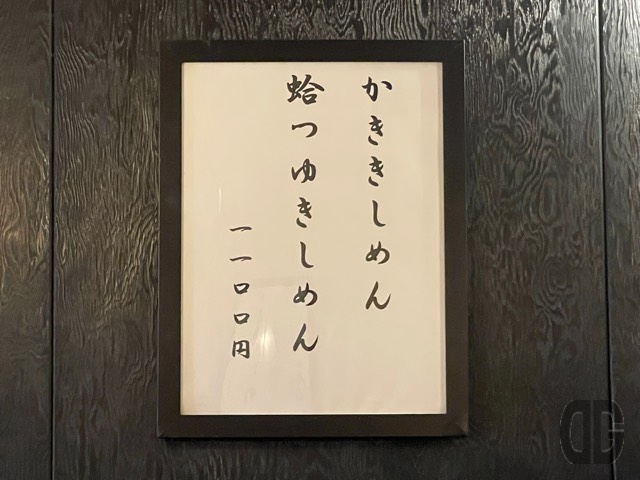 かききしめん
蛤つゆきしめん
一一〇〇円